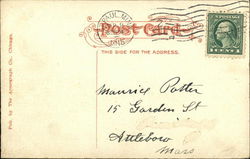 Post Card
THIS SIDE FOR THE ADDRESS.
Maurice Potter
15 Garden St
Attleboro
Mass
Pub. by The Acmegraph Co., Chicago.